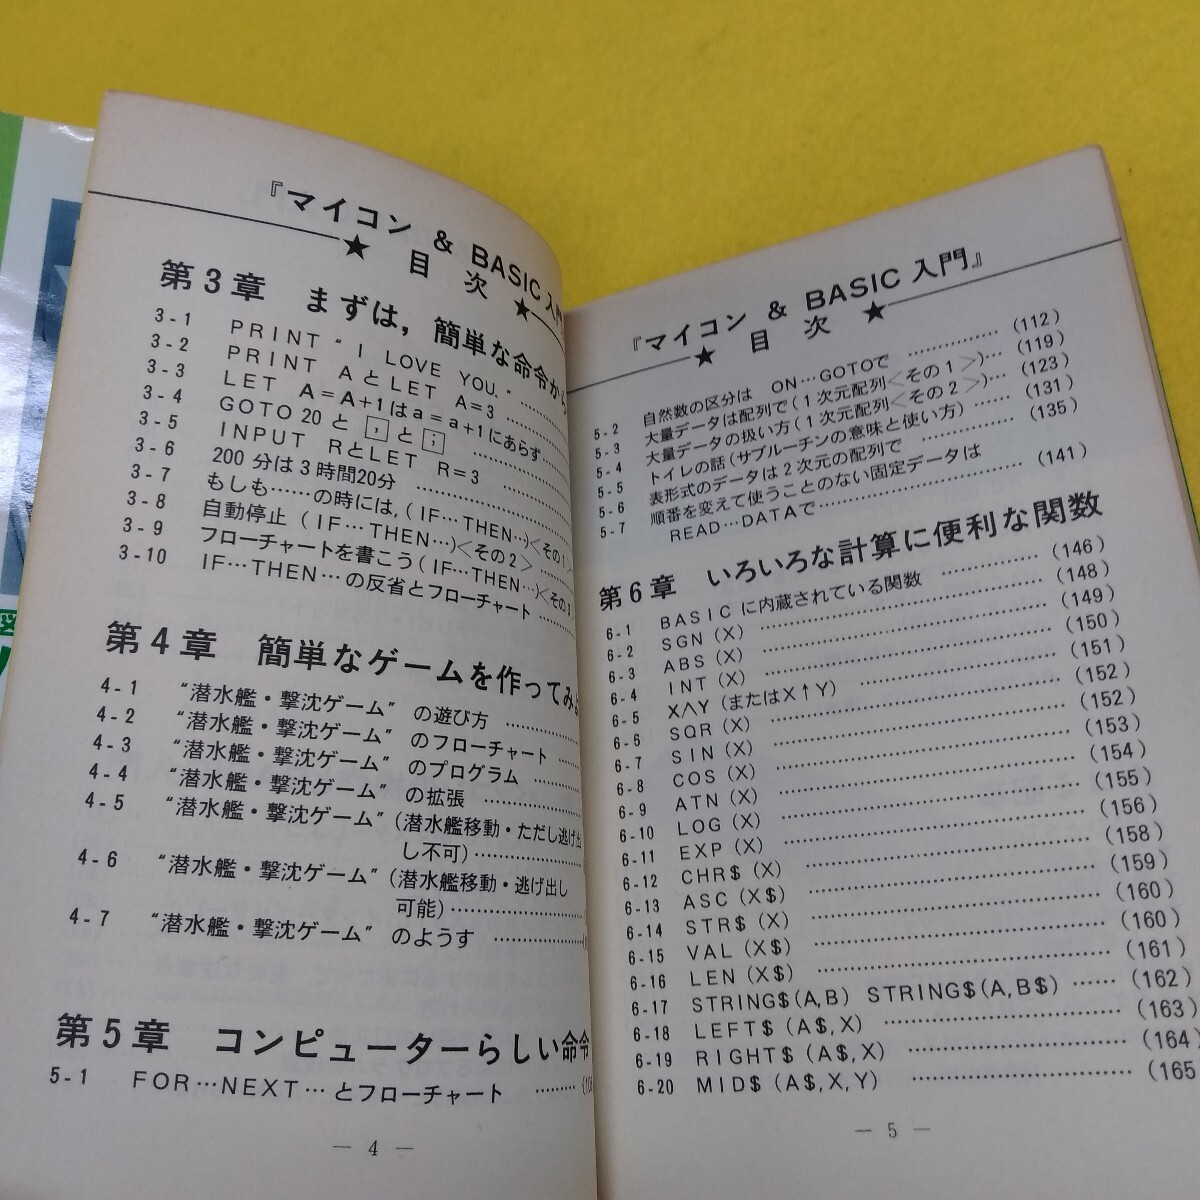 『マイコン & BASIC 入門
★ 目 次 ★
第3章 まずは，簡単な命令から
3-1 PRINT “I LOVE YOU.”
3-2 PRINT AとLET A=3
3-3 LET A=A+1はa=a+1にあらず……
3-4 GOTO20 と , と ;
3-5 INPUT RとLET R=3
3-6 200 分は3時間20分
3-7 もしも……の時には,(IF…THEN…)<その1>
3-8 自動停止 (IF…THEN…)<その2>
3-9 フローチャートを書こう(IF…THEN…)<その3
3-10 IF…THEN…の反省とフローチャート
第4章 簡単なゲームを作ってみよ
4-1 “潜水艦・撃沈ゲーム” の遊び方
4-2 “潜水艦・撃沈ゲーム” のフローチャート
4-3 “潜水艦・撃沈ゲーム” のプログラム
4-4 “潜水艦・撃沈ゲーム” の拡張
4-5 “潜水艦・撃沈ゲーム” (潜水艦移動・ただし逃げ出
し不可)
4-6 “潜水艦・撃沈ゲーム” (潜水艦移動・逃げ出し
可能)
4-7 “潜水艦・撃沈ゲーム” のようす
第5章 コンピューターらしい命令
5-1 FOR…NEXT…とフローチャート
— 4 —
『マイコン & BASIC 入門』
★ 目 次 ★
5-2 自然数の区分は ON…GOTOで (112)
5-3 大量データは配列で(1次元配列<その1>)… (119)
5-4 大量データの扱い方(1次元配列<その2>)… (123)
5-5 トイレの話(サブルーチンの意味と使い方)…… (131)
5-6 表形式のデータは2次元の配列で (135)
5-7 順番を変えて使うことのない固定データは
READ…DATAで (141)
第6章 いろいろな計算に便利な関数
6-1 BASICに内蔵されている関数 (146)
6-2 SGN (X) (148)
6-3 ABS (X) (149)
6-4 INT (X) (150)
6-5 X∧Y (またはX↑Y) (151)
6-6 SQR (X) (152)
6-7 SIN (X) (152)
6-8 COS (X) (153)
6-9 ATN (X) (154)
6-10 LOG (X) (155)
6-11 EXP (X) (156)
6-12 CHR$ (X) (158)
6-13 ASC (X$) (159)
6-14 STR$ (X) (160)
6-15 VAL (X$) (160)
6-16 LEN (X$) (161)
6-17 STRING$(A,B) STRING$(A,B$) …… (162)
6-18 LEFT$ (A$,X) (163)
6-19 RIGHT$ (A$,X) (164)
6-20 MID$ (A$,X,Y) (165
— 5 —